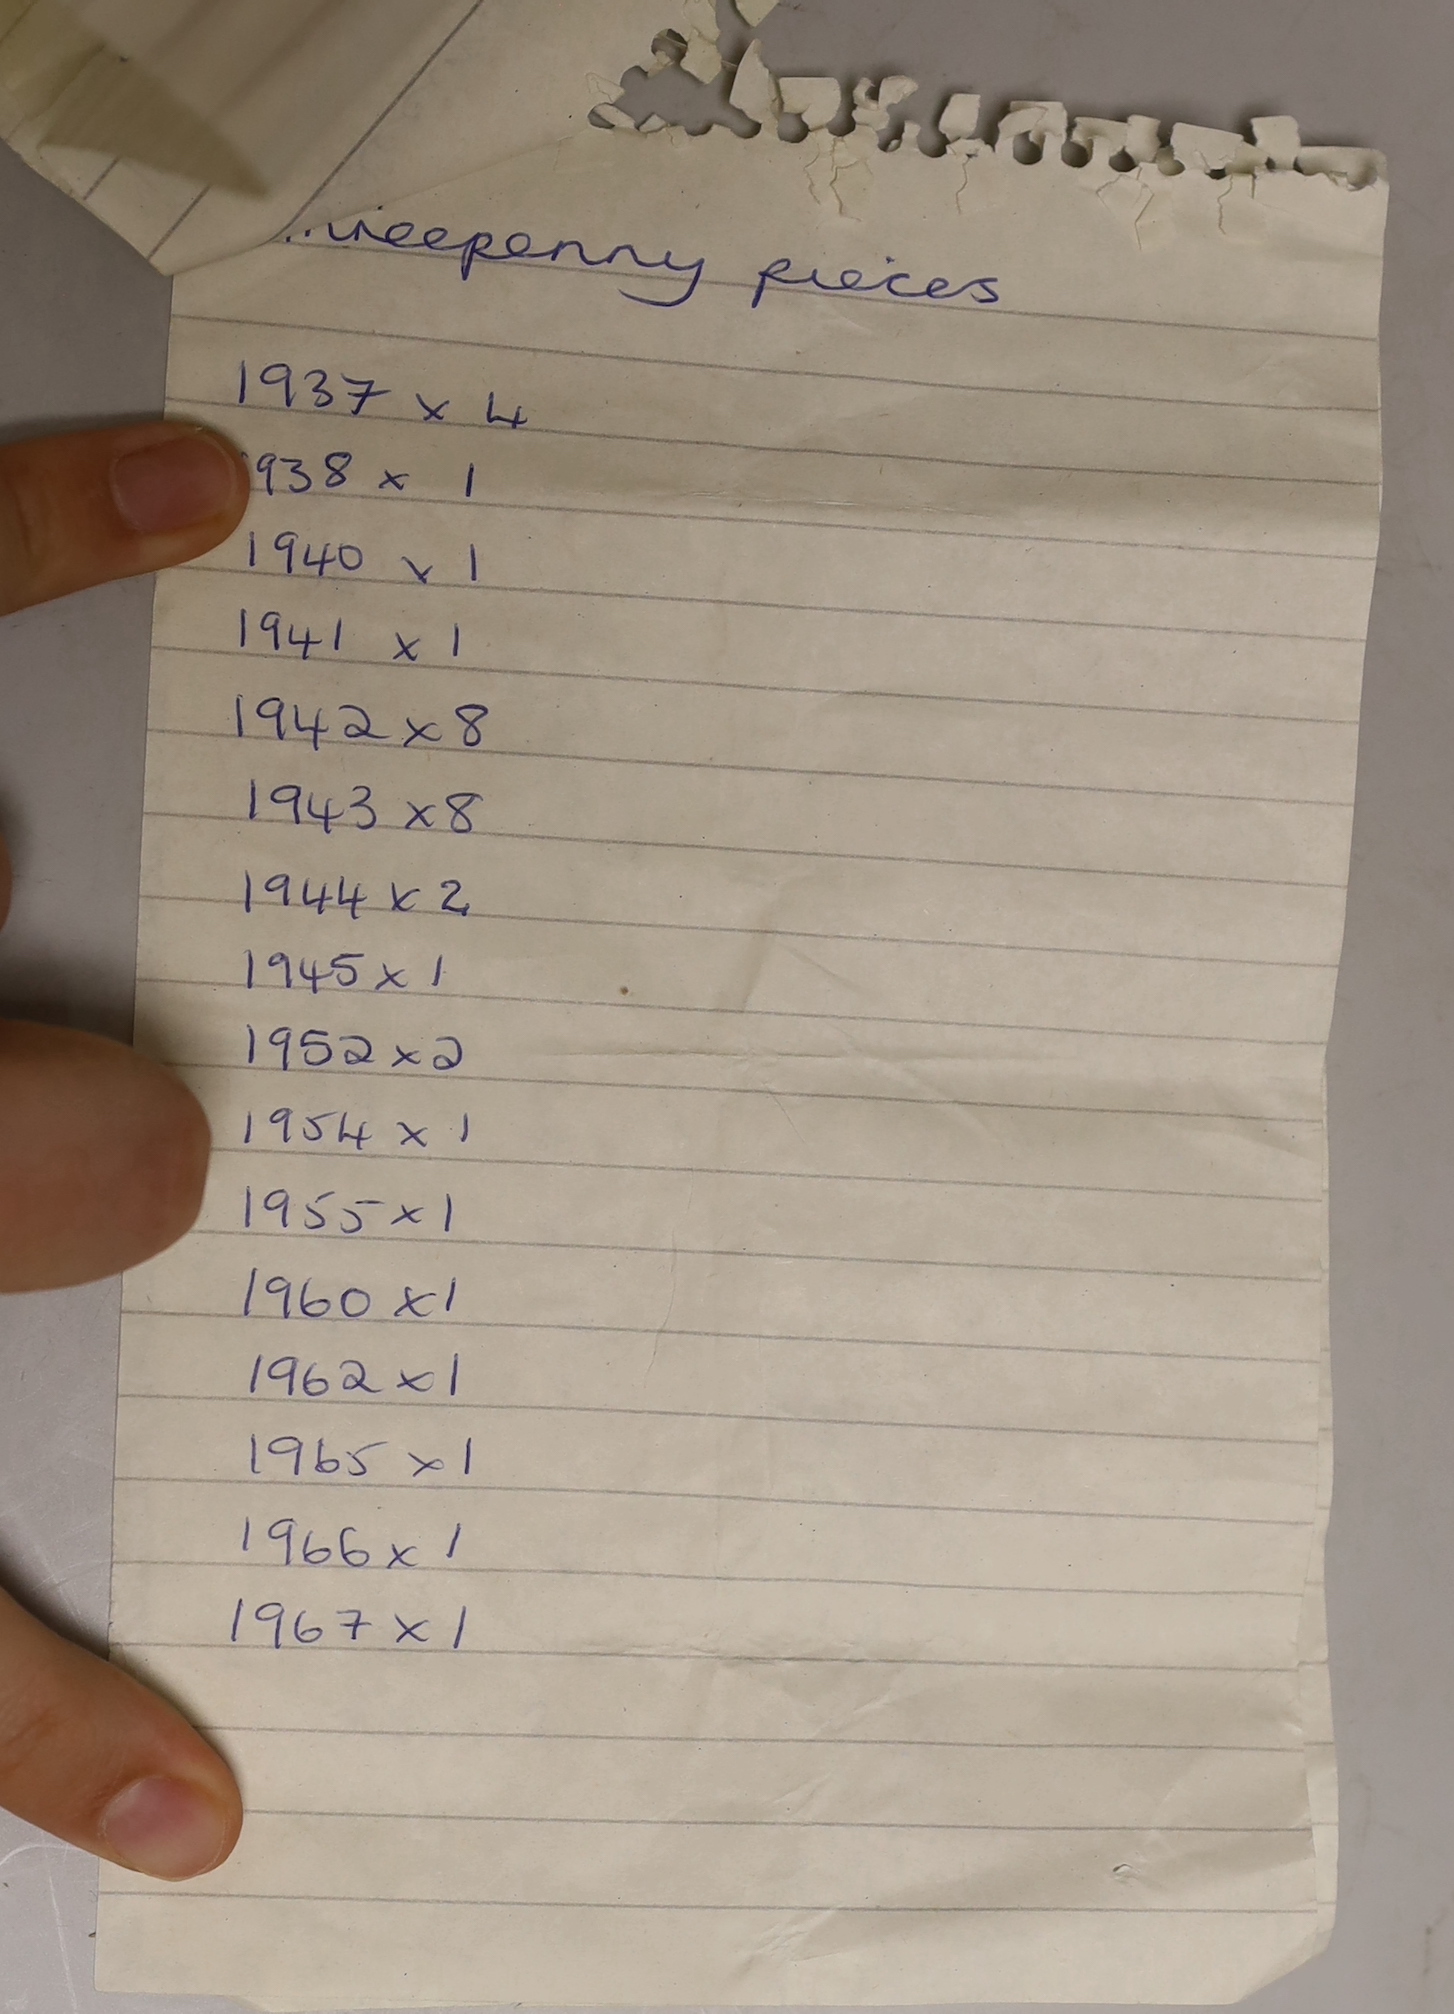 threepenny pieces
1937 x 4
1938 x 1
1940 x 1
1941 x 1
1942 x 8
1943 x 8
1944 x 2
1945 x 1
1952 x 2
1954 x 1
1955 x 1
1960 x 1
1962 x 1
1965 x 1
1966 x 1
1967 x 1